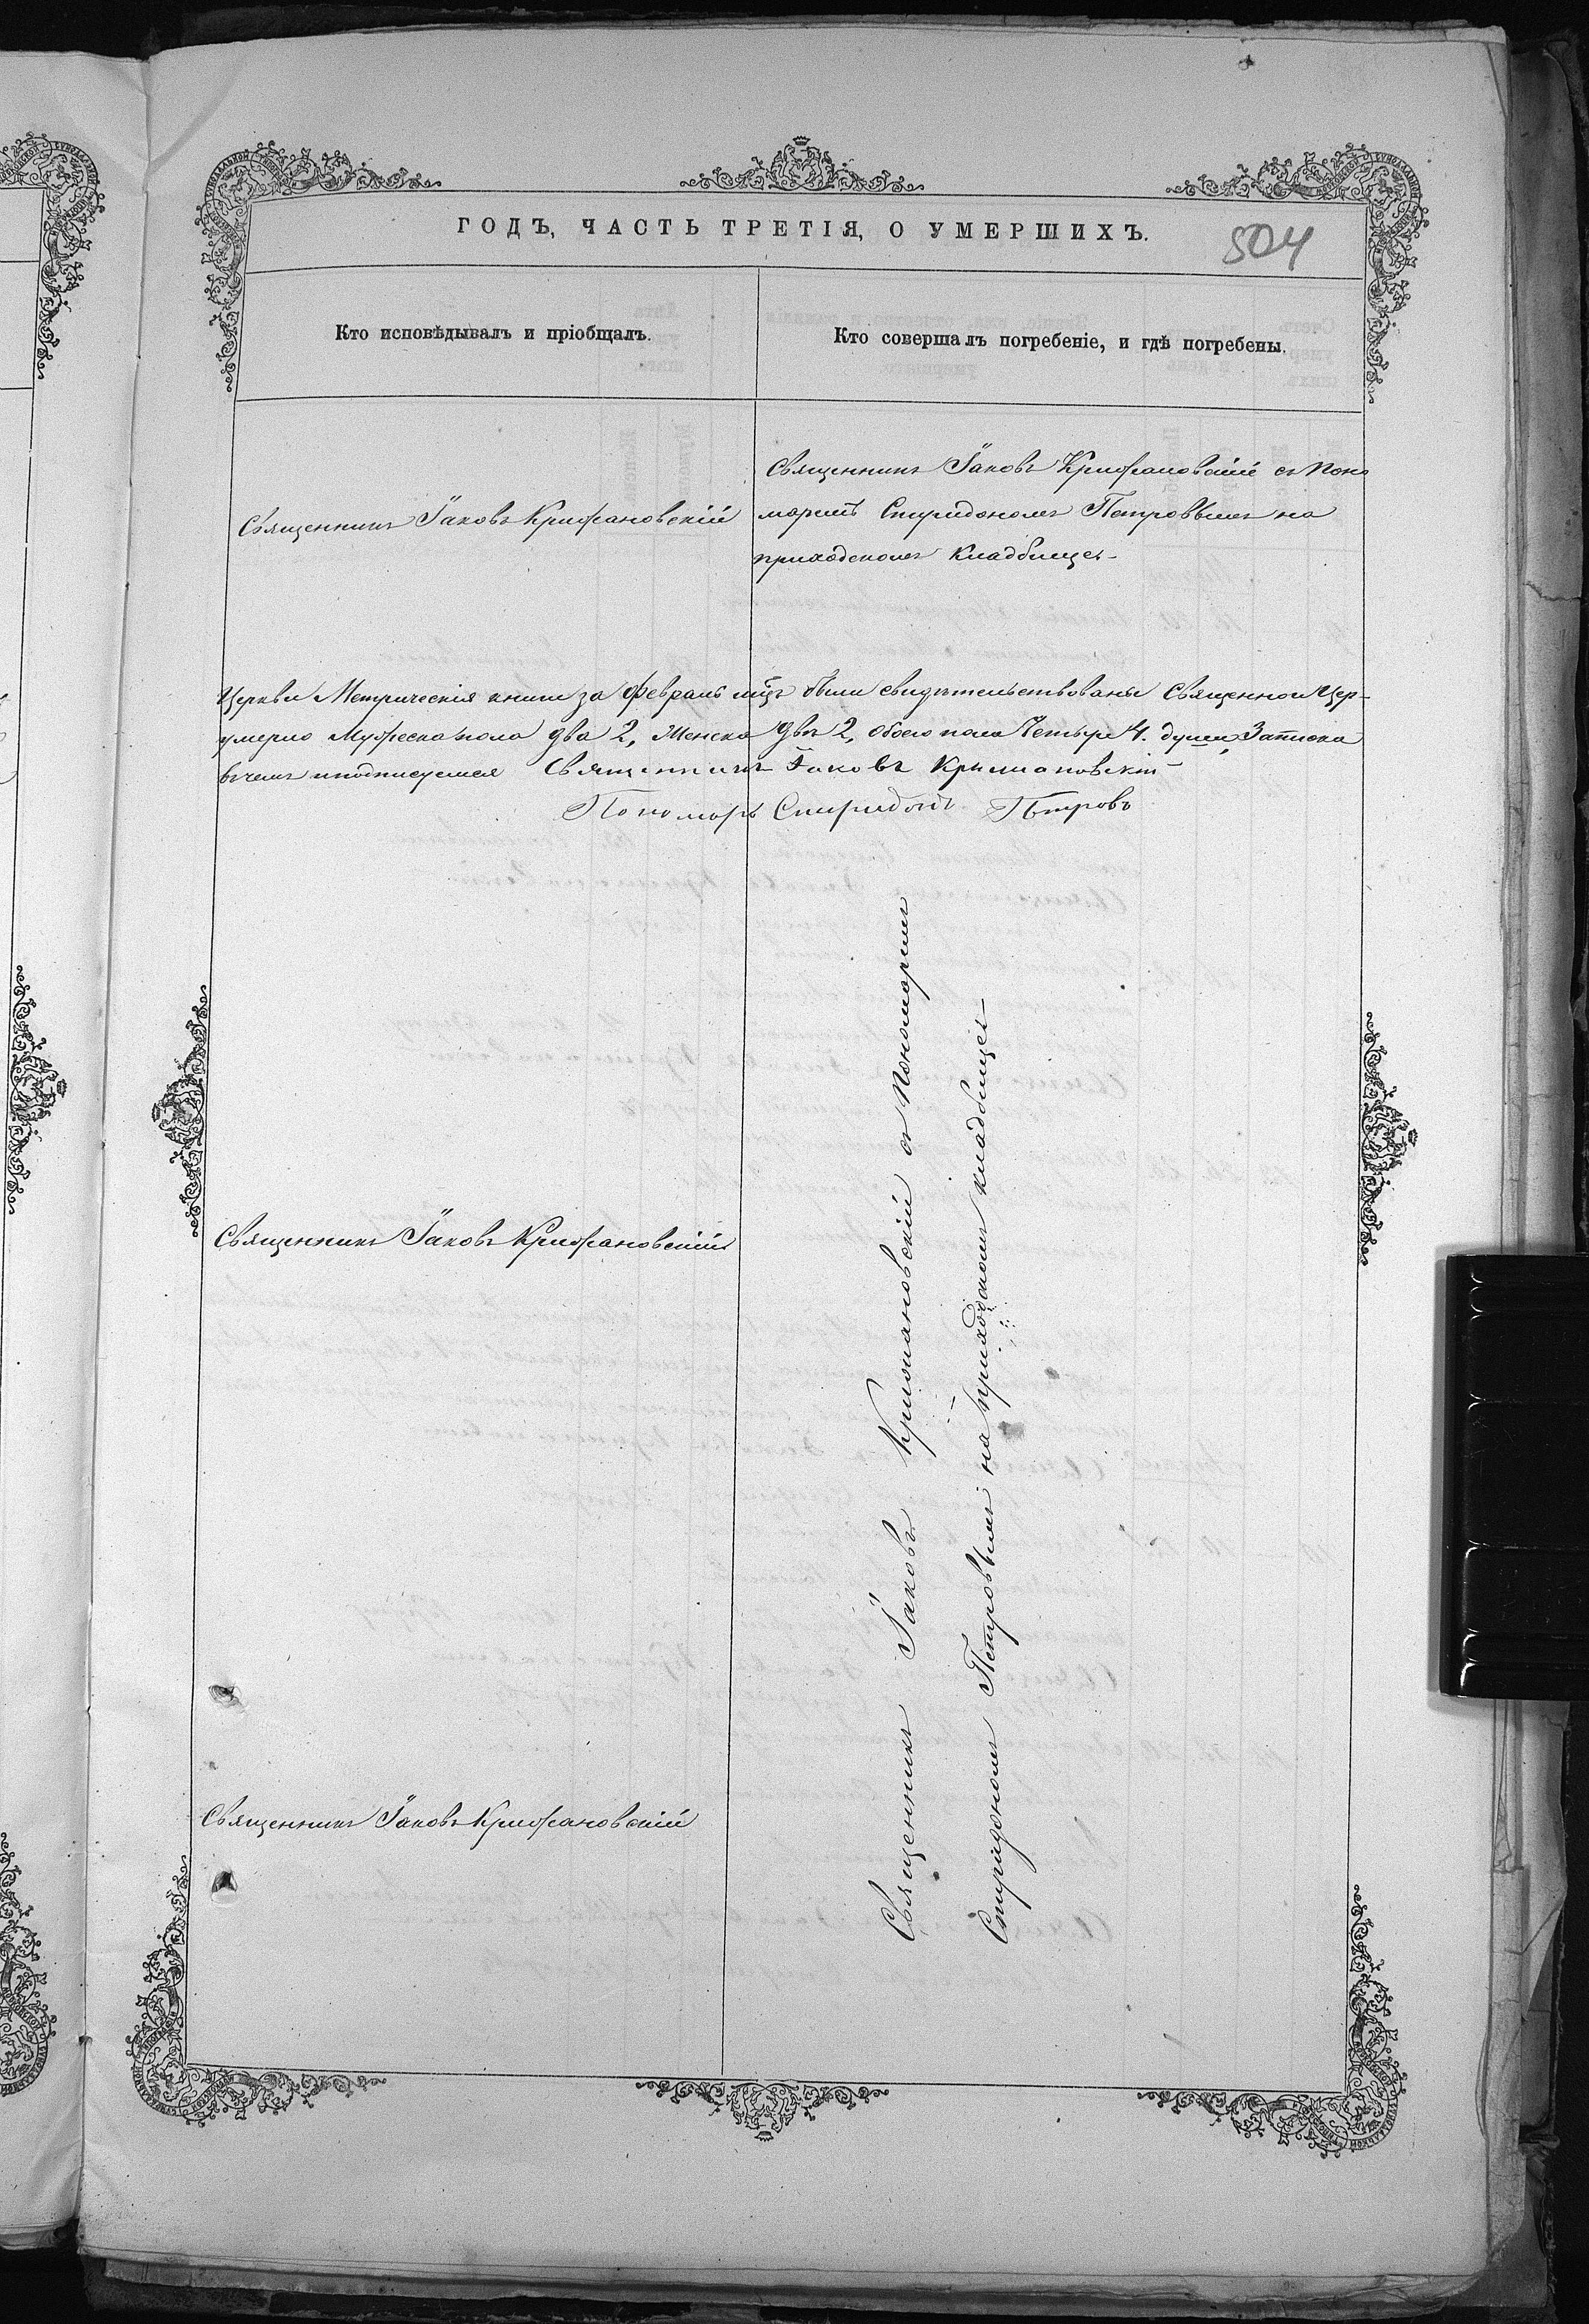 ГОДЪ, ЧАСТЬ ТРЕТІЯ, О УМЕРШИХЪ.
504
Кто исповѣдывалъ и пріобщалъ.
Кто совершалъ погребеніе, и гдѣ погребены.
Священникъ Іаковъ Крижановскій
Священникъ Іаковъ Крижановскій съ Поно
маремъ Спиридономъ Петровымъ на
приходскомъ кладбище
Церкви Метрическія книги за февраль мцъ были свидѣтельствованы Священноцер-
умерло Мужеска пола два 2, Женска два 2, обоего пола Четыре 4. души, Записка
въ чемъ и подписуемся Священникъ Іаковъ Крижановскій
Пономарь Спиридонъ Петровъ
Священникъ Іаковъ Крижановскій
Священникъ Іаковъ Крижановскій съ Пономаремъ
Спиридономъ Петровымъ на приходскомъ кладбище
Священникъ Іаковъ Крижановскій